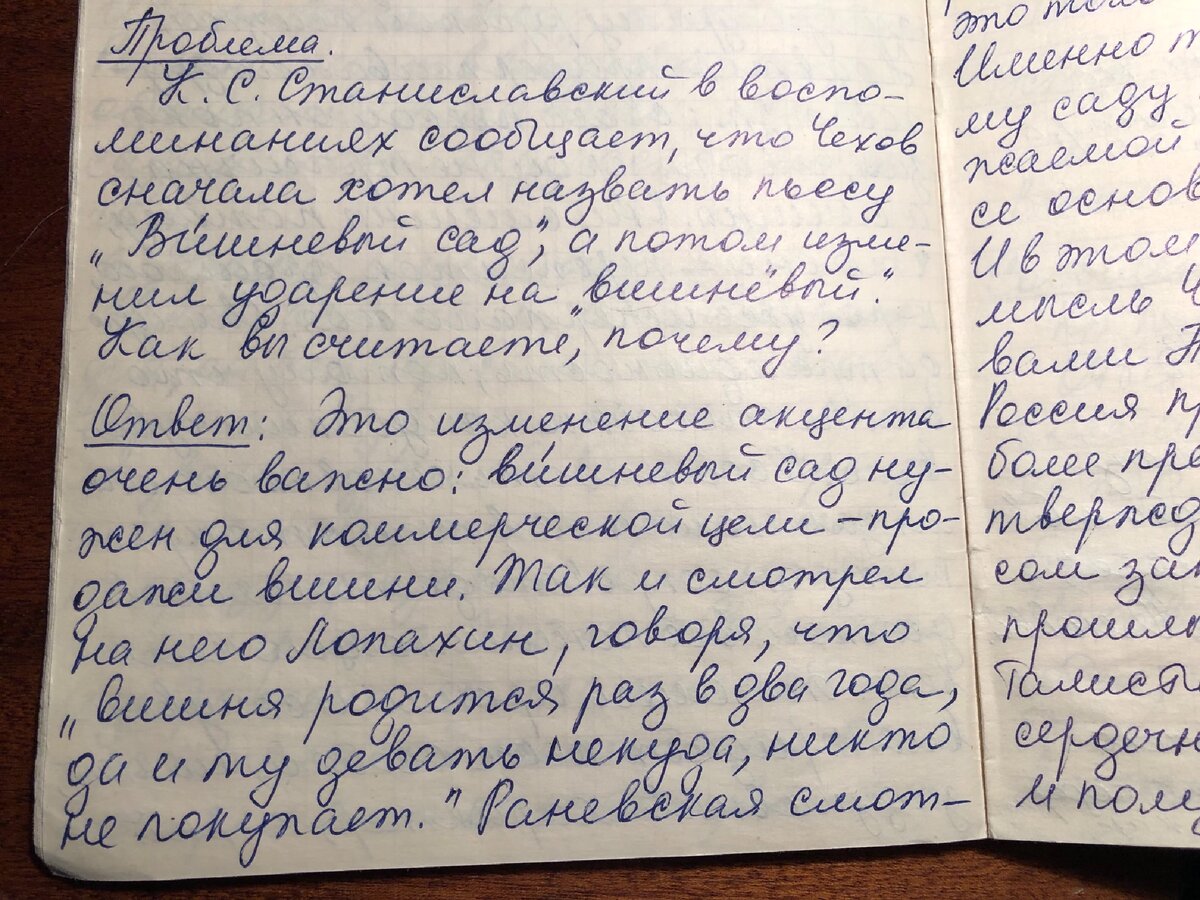 Проблема.
К. С. Станиславский в воспо-
минаниях сообщает, что Чехов
сначала хотел назвать пьесу
„Ви́шневый сад", а потом изме-
нил ударение на "вишнёвый".
Как вы считаете, почему?
Ответ: Это изменение акцента
очень важно: ви́шневый сад ну-
жен для коммерческой цели – про-
дажи вишни. Так и смотрел
на него Лопахин, говоря, что
„вишня родится раз в два года,
да и ту девать некуда, никто
не покупает." Раневская смот-
это
Именно
му саду
жаемой
се основ
И в этом
мысль
вами
Россия
более
тверж
сом
прошл
сердечн
и